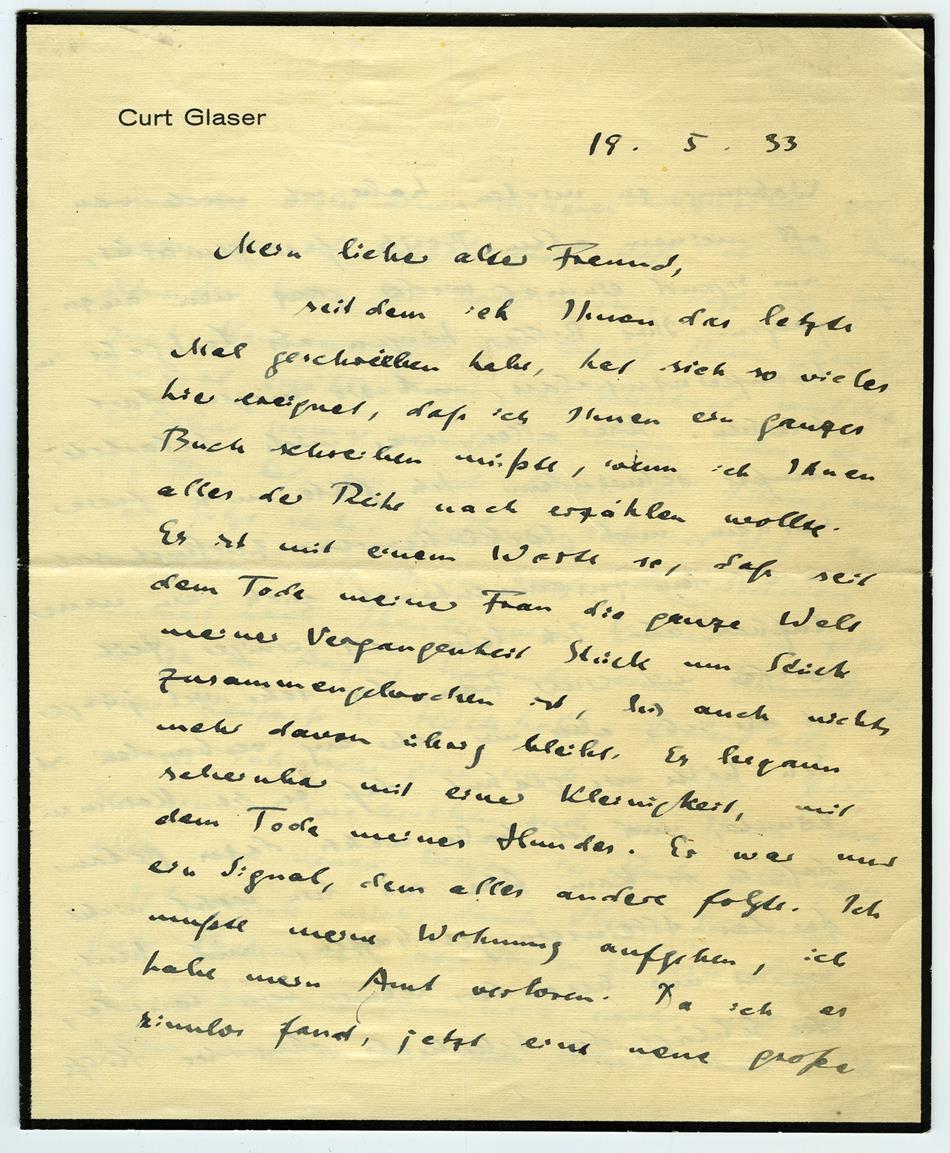 Curt Glaser
19. 5. 33
Mein lieber alter Freund,
seitdem ich Ihnen das letzte
Mal geschrieben habe, hat sich so vieles
hier ereignet, daß ich Ihnen ein ganzes
Buch schreiben müßte, wenn ich Ihnen
alles der Reihe nach erzählen wollte.
Es ist mit einem Worte so, daß seit
dem Tode meiner Frau die ganze Welt
meiner Vergangenheit Stück um Stück
zusammengebrochen ist, bis auch nichts
mehr davon übrig bleibt. Es begann
scheinbar mit einer Kleinigkeit, mit
dem Tode meines Hundes. Es war nur
ein Signal, dem alles andere folgte. Ich
mußte meine Wohnung aufgeben, ich
habe mein Amt verloren. Da ich es
sinnlos fand, jetzt eine neue große